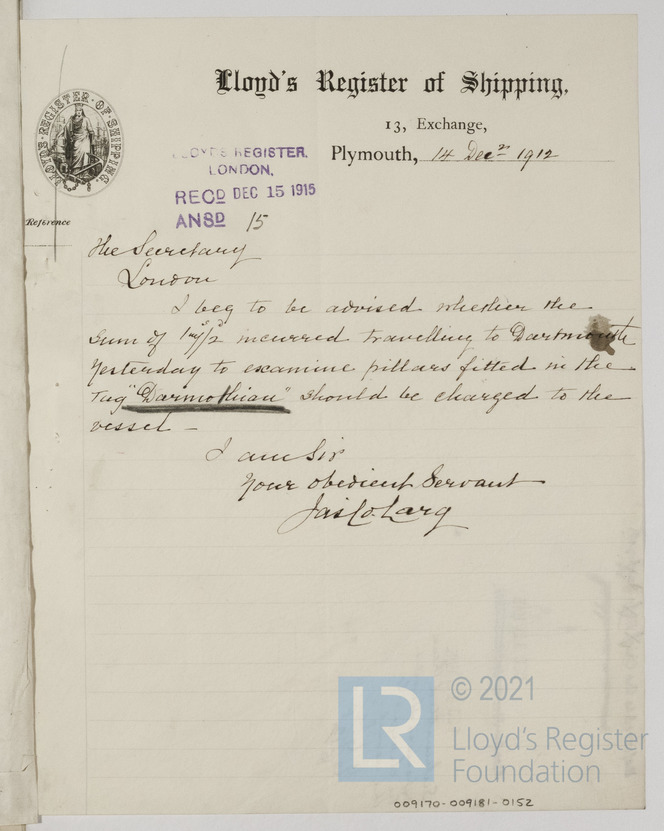 Lloyd's Register of Shipping,
13, Exchange,
Plymouth, 14 Decr 1912
LLOYD'S REGISTER OF SHIPPING
LLOYD'S REGISTER.
LONDON,
RECD DEC 15 1915
ANSD 15
Reference
The Secretary
London
I beg to be advised whether the
sum of incurred travelling to Dartmouth
yesterday to examine pillars fitted in the
Tug "Darmothian" should be charged to the
vessel —
I am Sir
Your obedient Servant
Jas Larg
LR
© 2021
Lloyd's Register
Foundation
009170-009181-0152